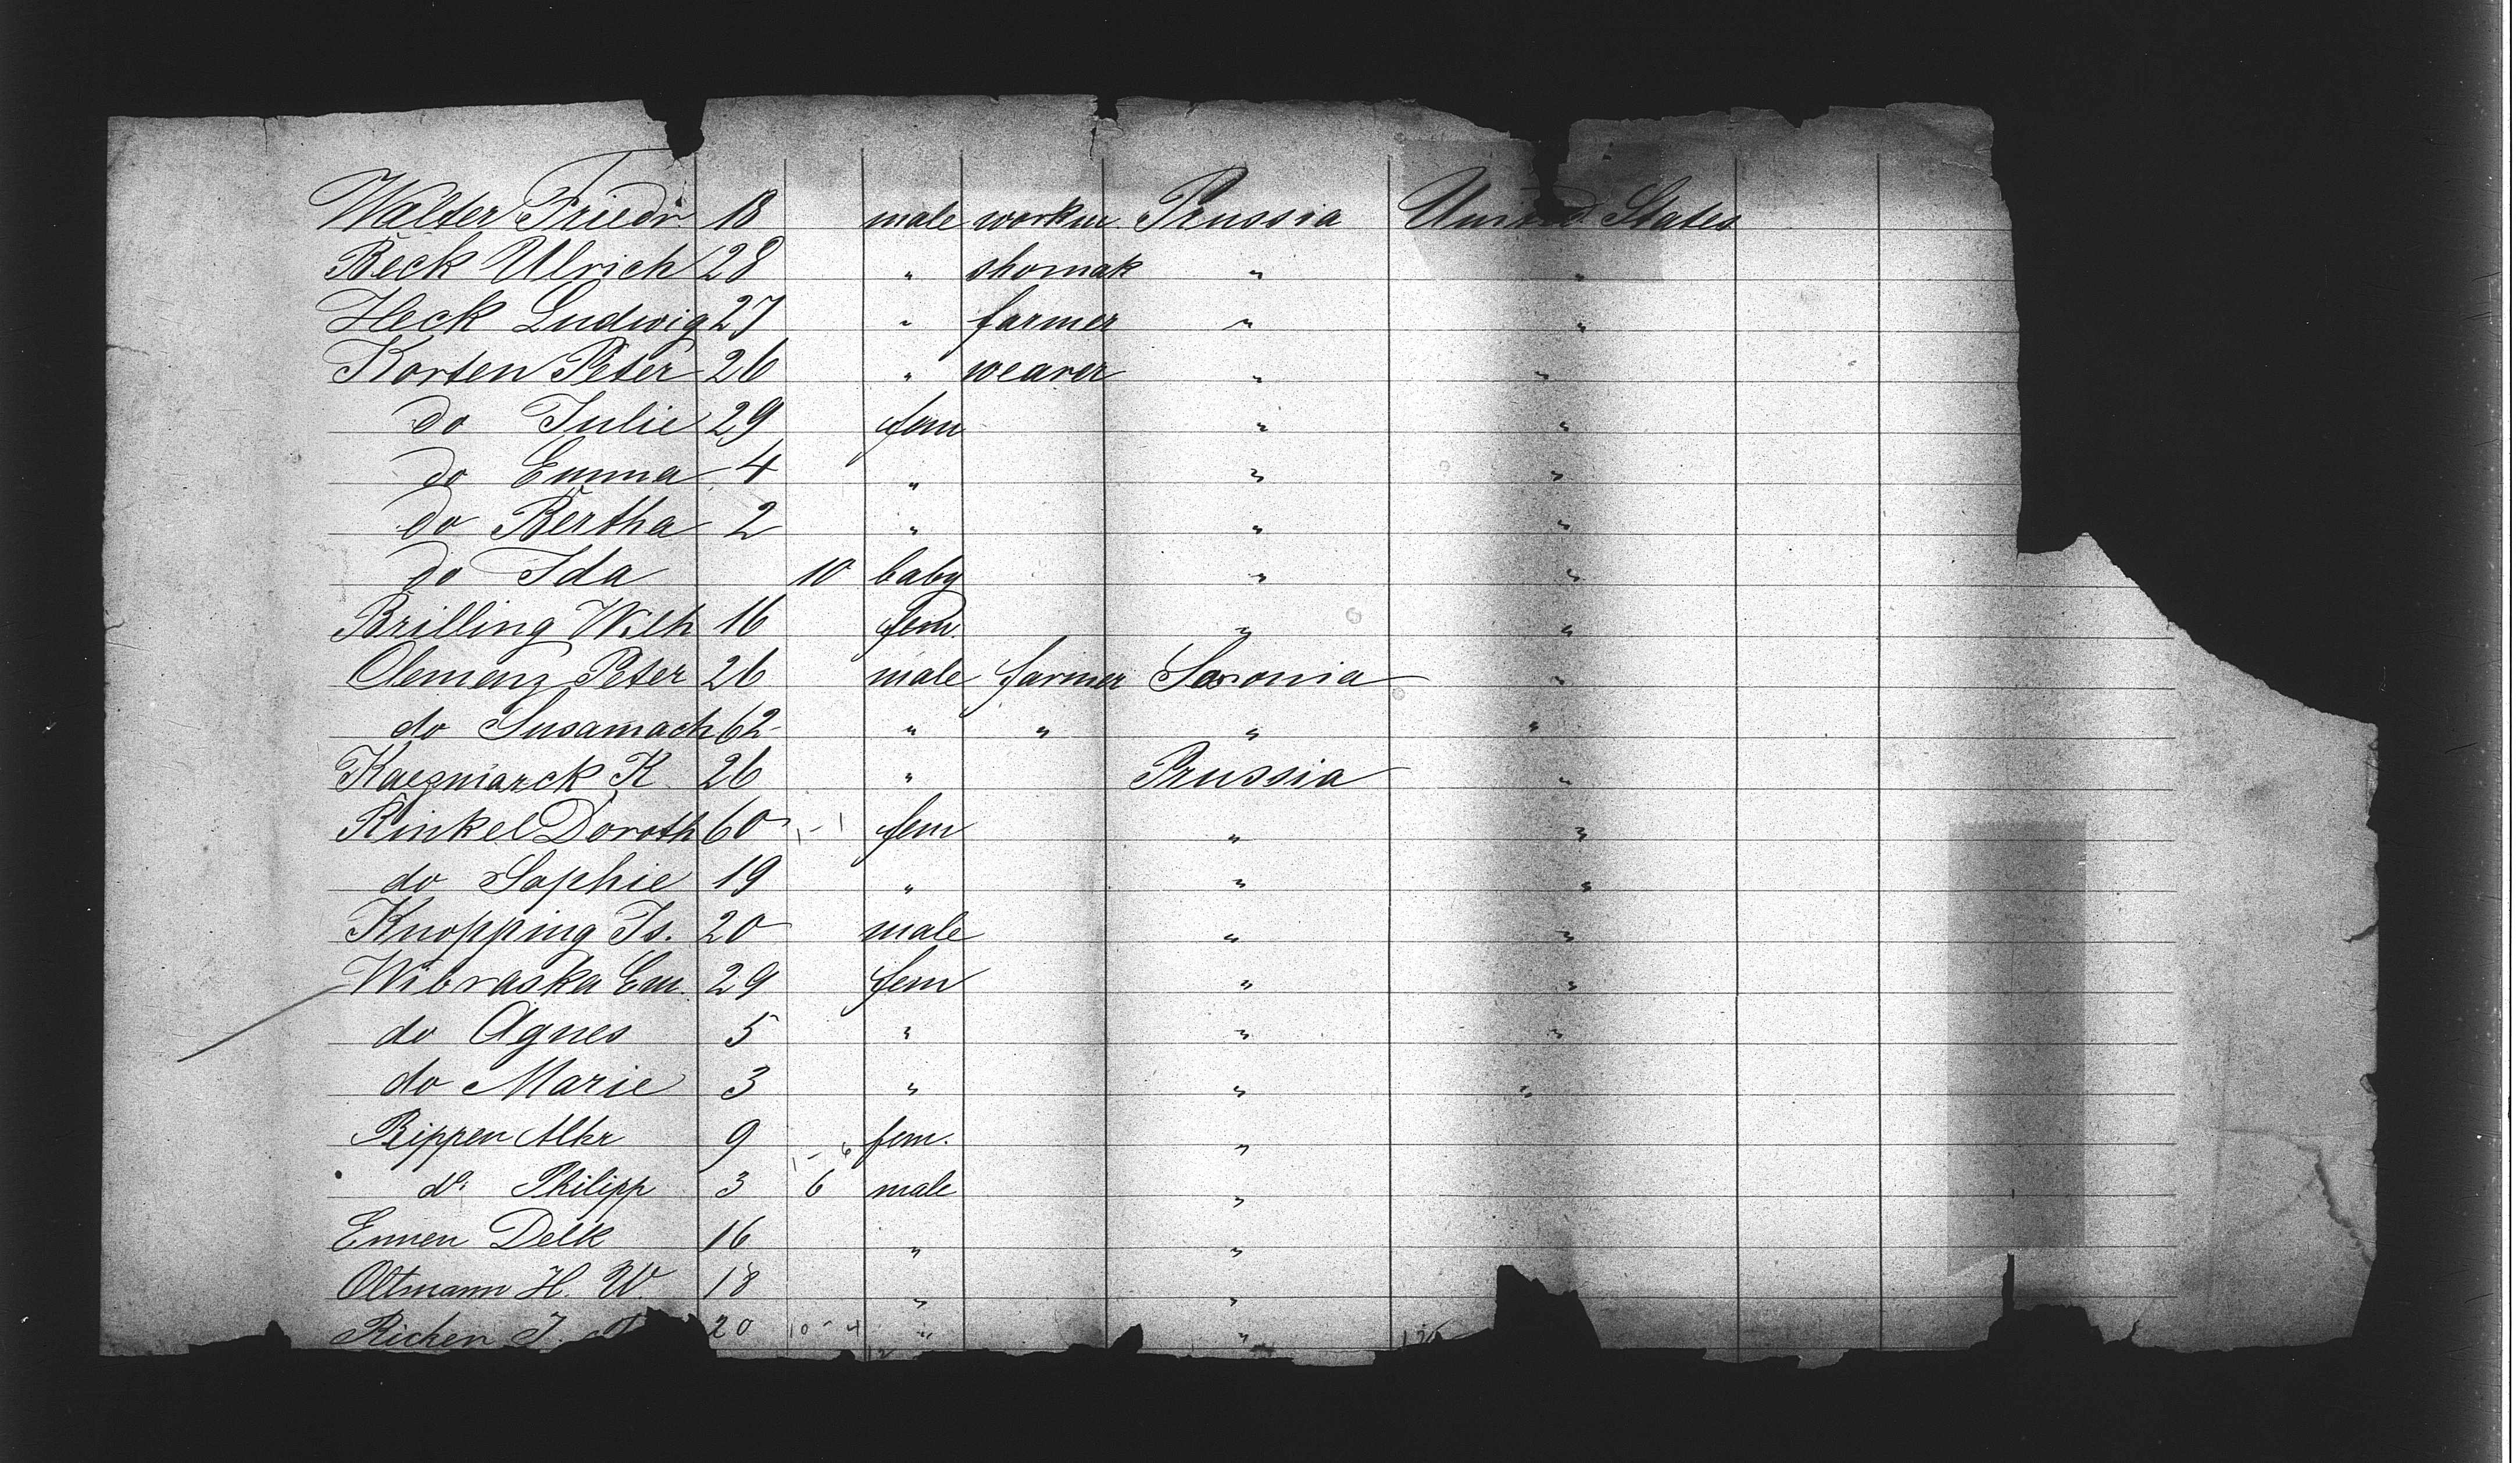 Walter Friedr. 18 male worker. Prussia United States
Beck Ulrich 28 " shomak " "
Heck Ludwig 27 " farmer " "
Korten Peter 26 " weaver " "
do Julie 29 fem " "
do Emma 4 " " "
do Bertha 2 " " "
do Ida 10 baby " "
Brilling Wilh 16 fem. " "
Clemenz Peter 26 male farmer Saxonia "
do Susamach 62 " " " "
Kaezmarck K. 26 " Prussia "
Rinkel Doroth 60 1-1 fem " "
do Sophie 19 " " "
Knopping Js. 20 male " "
Wibraska Em. 29 fem " "
do Agnes 5 " " "
do Marie 3 " " "
Rippen 9 fem. "
1-6
do Philipp 3 6 male "
Ennen Delk 16 " "
Oltmann H. W. 18 " "
Richen J. 20 10-4 " "